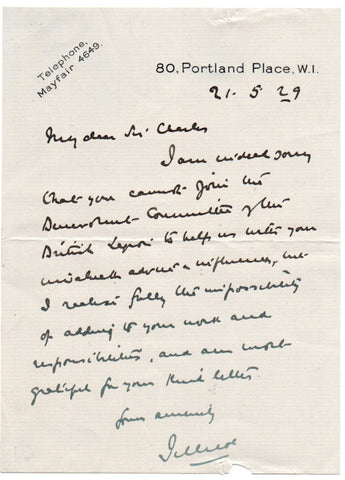 Telephone,
Mayfair 4649.
80, Portland Place, W.1.
21. 5. 29
My dear Sir Charles
I am indeed sorry
that you cannot join the
Benevolent Committee of the
British Legion to help us with your
invaluable advice & influence, but
I realise fully the impossibility
of adding to your work and
responsibilities, and am most
grateful for your kind letter.
Yours sincerely
Jellicoe